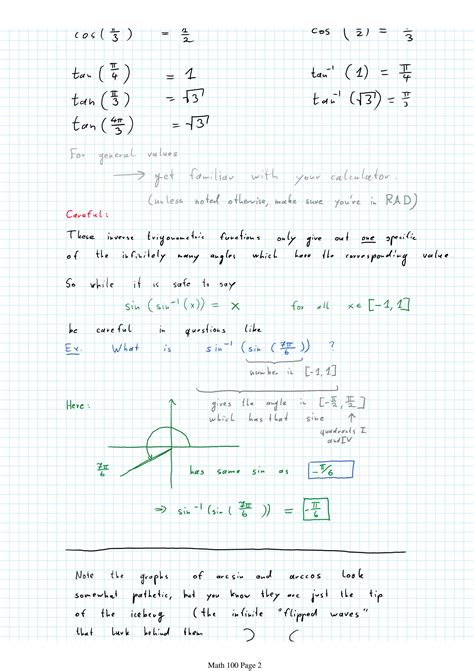 cos ( π/3 ) = 1/2
cos⁻¹ ( 1/2 ) = π/3
tan ( π/4 ) = 1
tan⁻¹ ( 1 ) = π/4
tan ( π/3 ) = √3
tan⁻¹ ( √3 ) = π/3
tan ( 4π/3 ) = √3
For general values
→ get familiar with your calculator.
(unless noted otherwise, make sure you're in RAD)
Careful:
These inverse trigonometric functions only give out one specific
of the infinitely many angles which have the corresponding value
So while it is safe to say
sin ( sin⁻¹ (x)) = x for all x ∈ [-1, 1]
be careful in questions like
Ex. What is sin⁻¹ (sin ( 7π/6 )) ?
number in [-1, 1]
Here:
gives the angle in [-π/2, π/2]
which has that sine
quadrants I
and IV
7π/6 has same sin as -π/6
⇒ sin⁻¹ (sin ( 7π/6 )) = -π/6
Note the graphs of arcsin and arccos look
somewhat pathetic, but you know they are just the tip
of the iceberg (the infinite "flipped waves"
that lurk behind them )
Math 100 Page 2